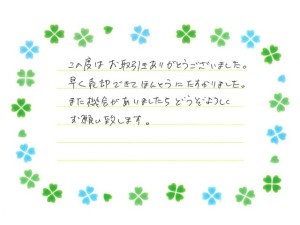 この度は お取引きありがとうございました。
早く売却できてほんとうにたすかりました。
また機会がありましたら どうぞよろしく
お願い致します。